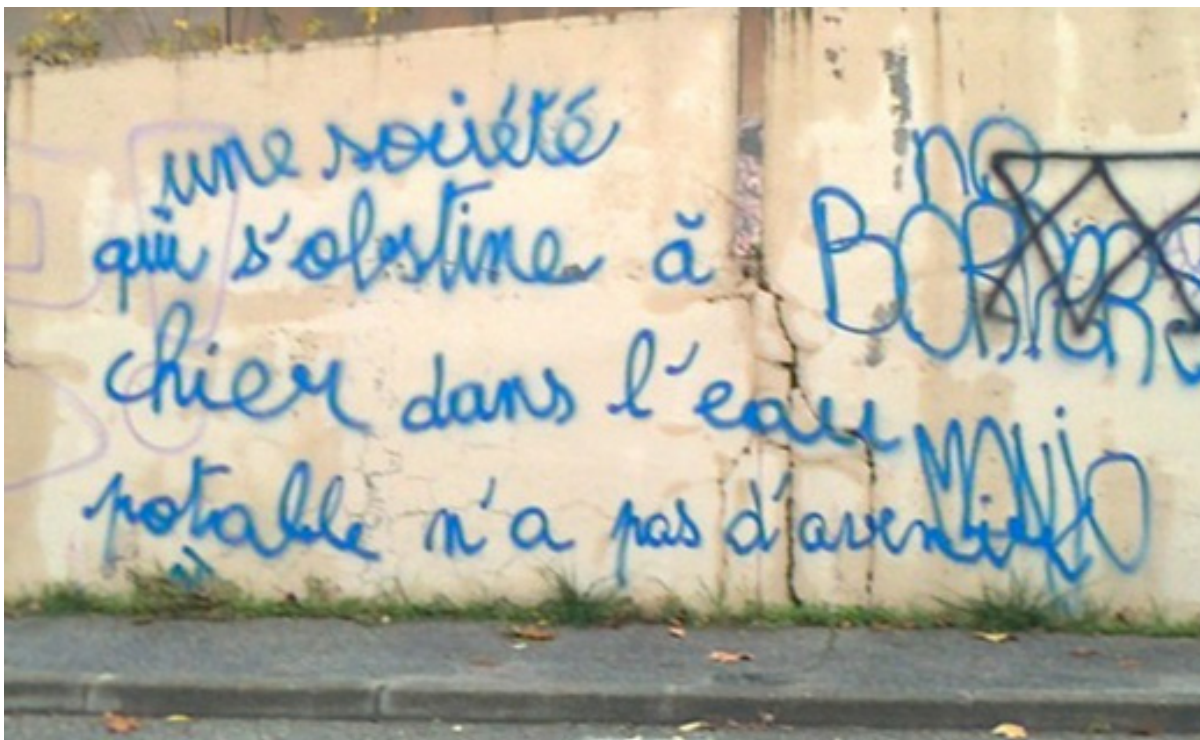 une société
qui s'obstine à
chier dans l'eau
potable n'a pas d'avenir
no
BORDERS